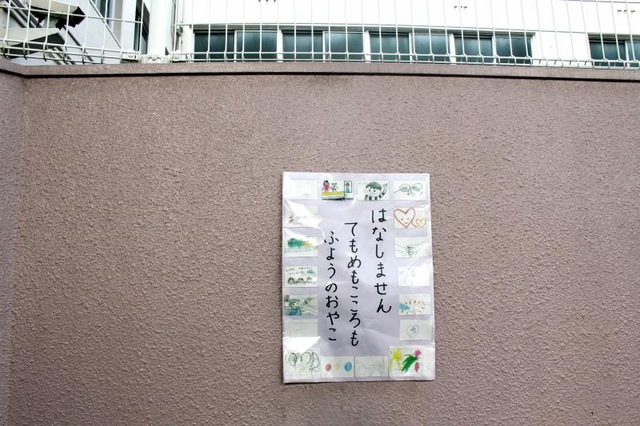 はなしません
てもめもこころも
ふようのおやこ